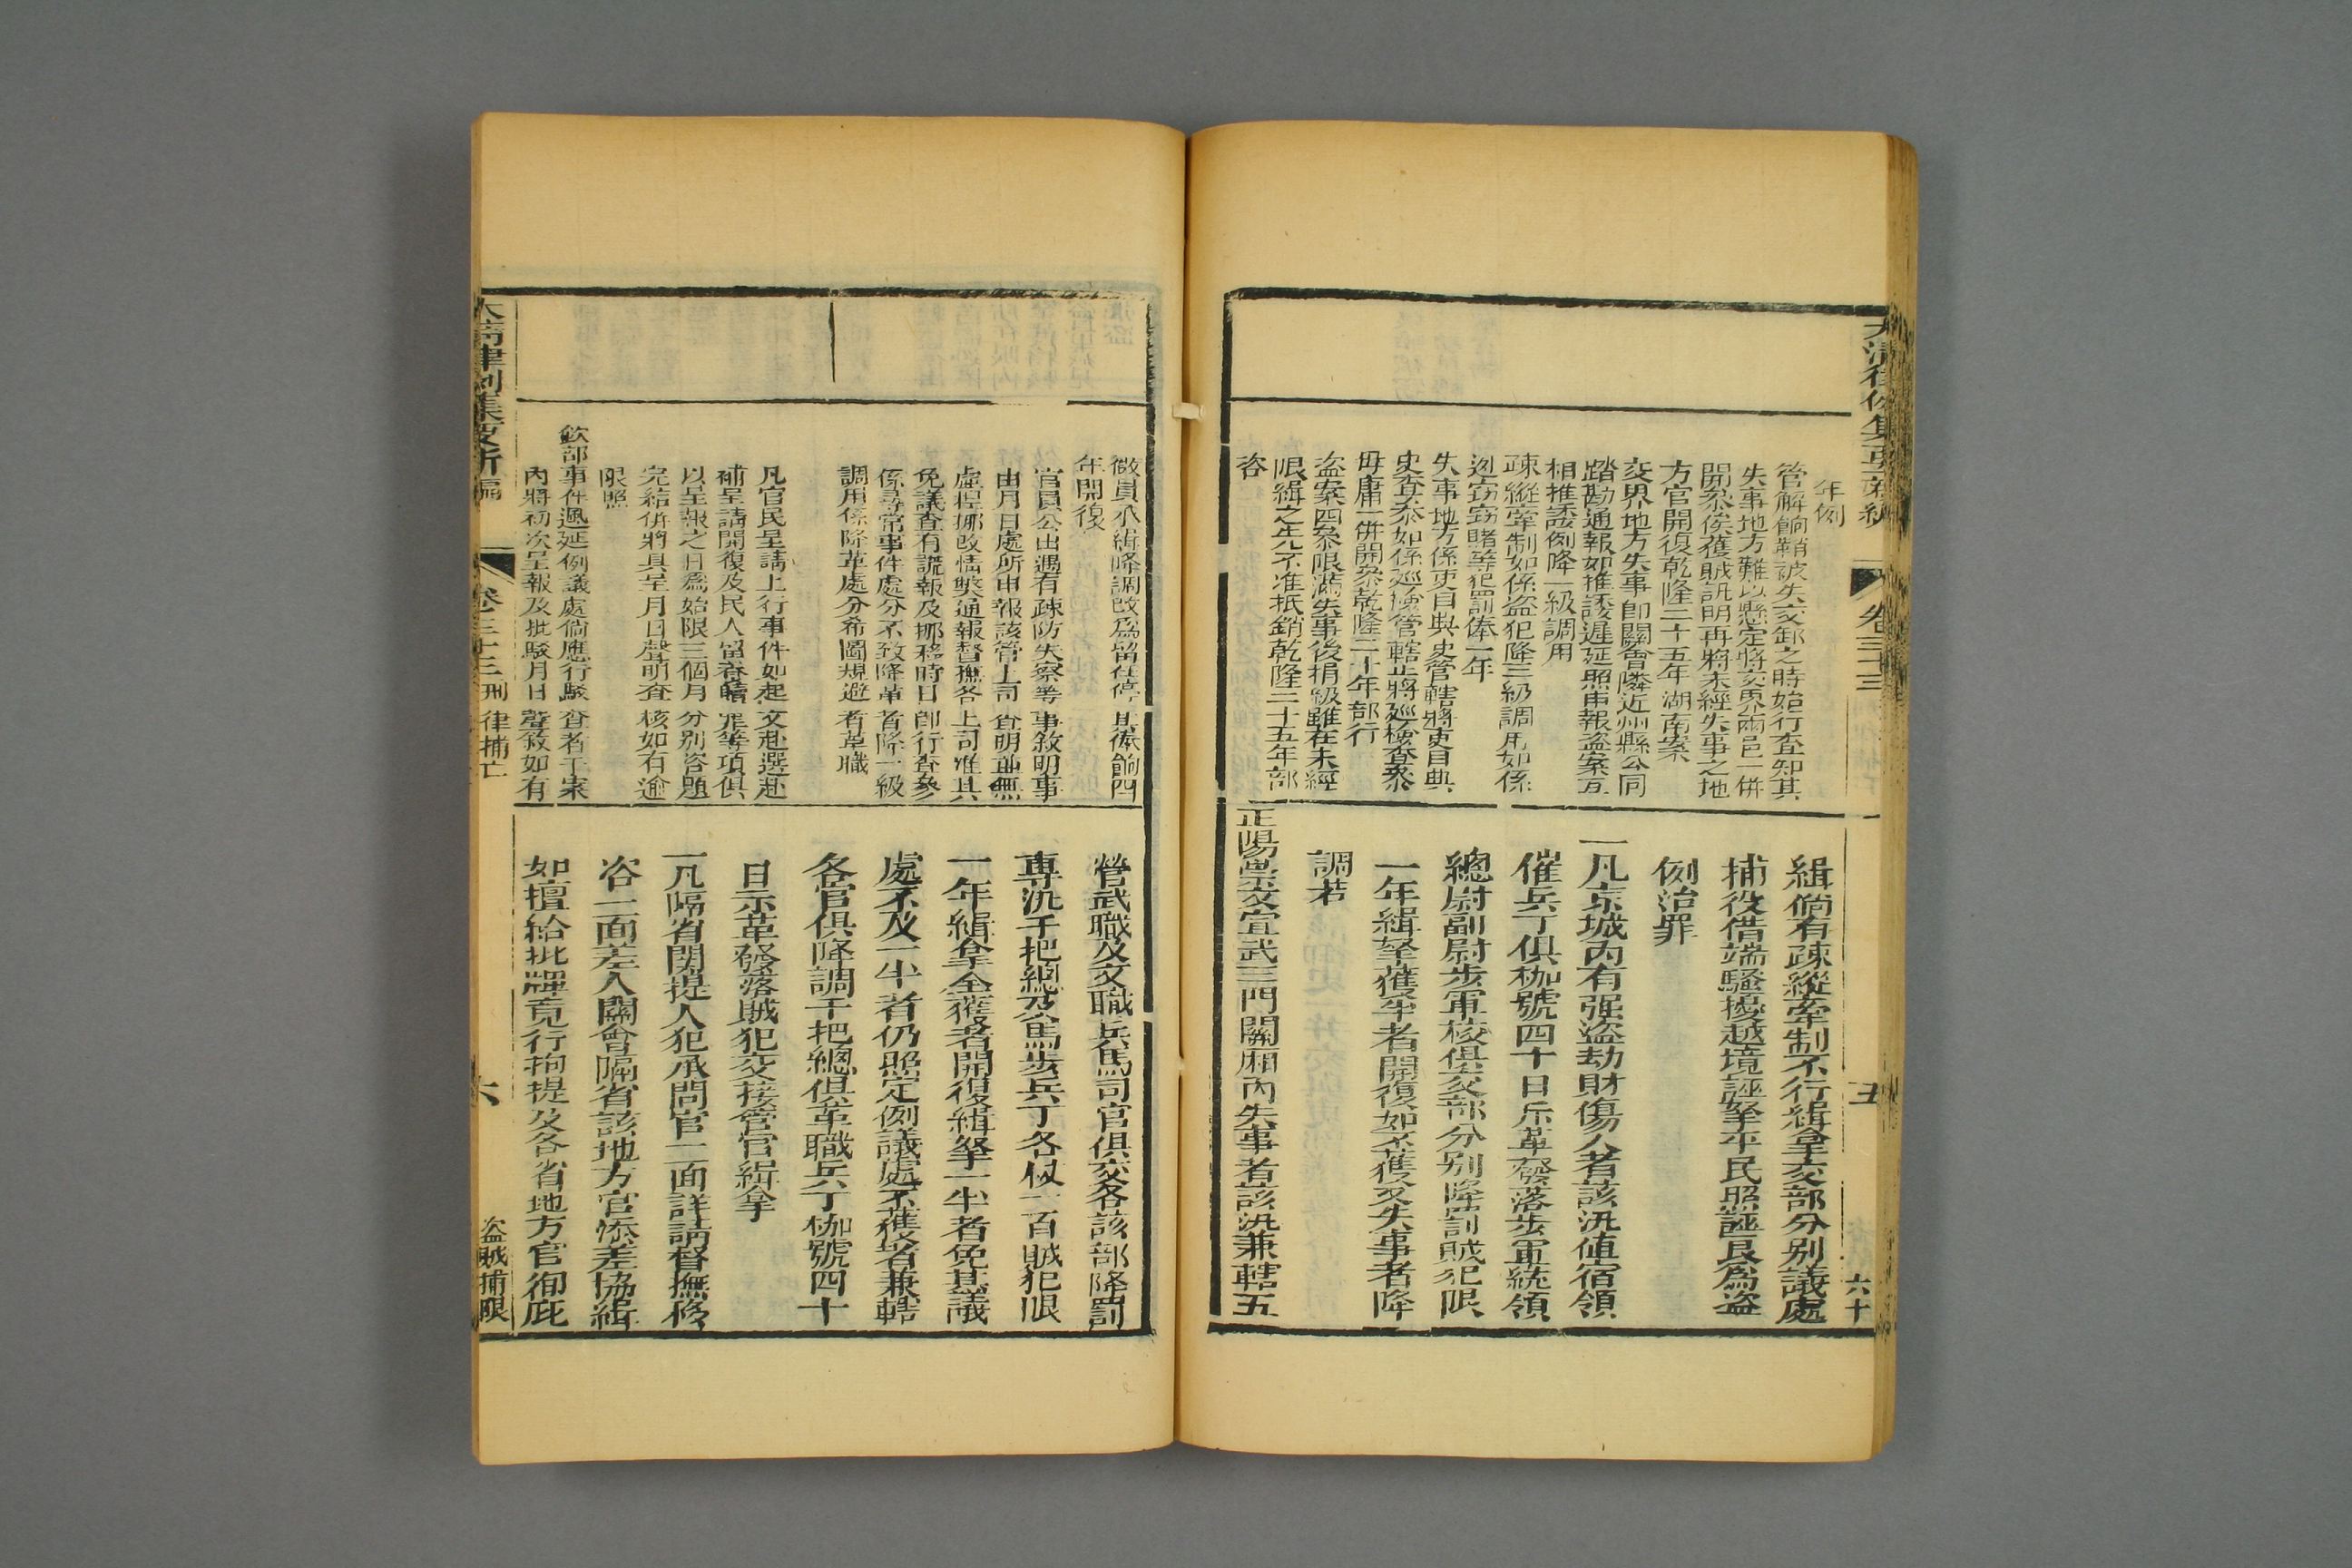 年例
管解餉鞘被失交卸之時始行查知其
失事地方難以懸定將交界兩邑一併
開參俟獲賊訊明再將未經失事之地
方官開復乾隆二十五年湖南案
交界地方失事卽關會隣近州縣公同
踏勘通報如推諉遲延照申報盜案互
相推諉例降一級調用
疎縱牽制如係盜犯降三級調用如係
逃窃窃賭等犯罰俸一年
失事地方係吏目典史管轄將吏目典
史查叅如係廵檢管轄止將廵檢查叅
毋庸一併開叅乾隆二十年部行
盜案四叅限滿失事後捐級雖在未經
限緝之先不准抵銷乾隆二十五年部
咨
緝倘有疎縱牽制不行緝拿交部分别議處
捕役借端騷擾越境誣拏平民照誣良爲盜
例治罪
一凡京城內有强盜劫財傷人者該汛值宿領
催兵丁俱枷號四十日示革發落步軍統領
總尉副尉步軍校俱交部分别降罰賊犯限
一年緝拏獲半者開復如不獲又失事者降
調若
正陽崇文宣武三門關廂內失事者該汛兼轄五
大清律例集要新編
卷三十三
五
六十
微員承緝降調改爲留任停其俸餉四
年開復
官員公出遇有疎防失察等事敘明事
由月日處所申報該管上司查明並無
虛捏挪改情獘通報督撫各上司准其
免議查有謊報及挪移時日卽行查參
係尋常事件處分不致降革者降一級
調用係降革處分希圖規避者革職
凡官民呈請上行事件如起文赴選赴
補呈請開復及民人留養贖罪等項俱
以呈報之日爲始限三個月分别咨題
完結併將具呈月日聲明查核如有逾
限照
欽部事件遲延例議處倘應行駁查者于案
內將初次呈報及批駁月日聲敘如有
營武職及文職兵馬司官俱交各該部降罰
專汛千把總及馬步兵丁各杖一百賊犯限
一年緝拿全獲者開復緝拏一半者免其議
處不及一半者仍照定例議處不獲者兼轄
各官俱降調千把總俱革職兵丁枷號四十
日示革發落賊犯交接管官緝拿
一凡隔省関提人犯承問官一面詳請督撫移
咨一面差人關會隔省該地方官添差協緝
如擅給批牌竟行拘提及各省地方官徇庇
大淸律例集要新編
卷三十三
刑律捕亡
六
盜賊捕限